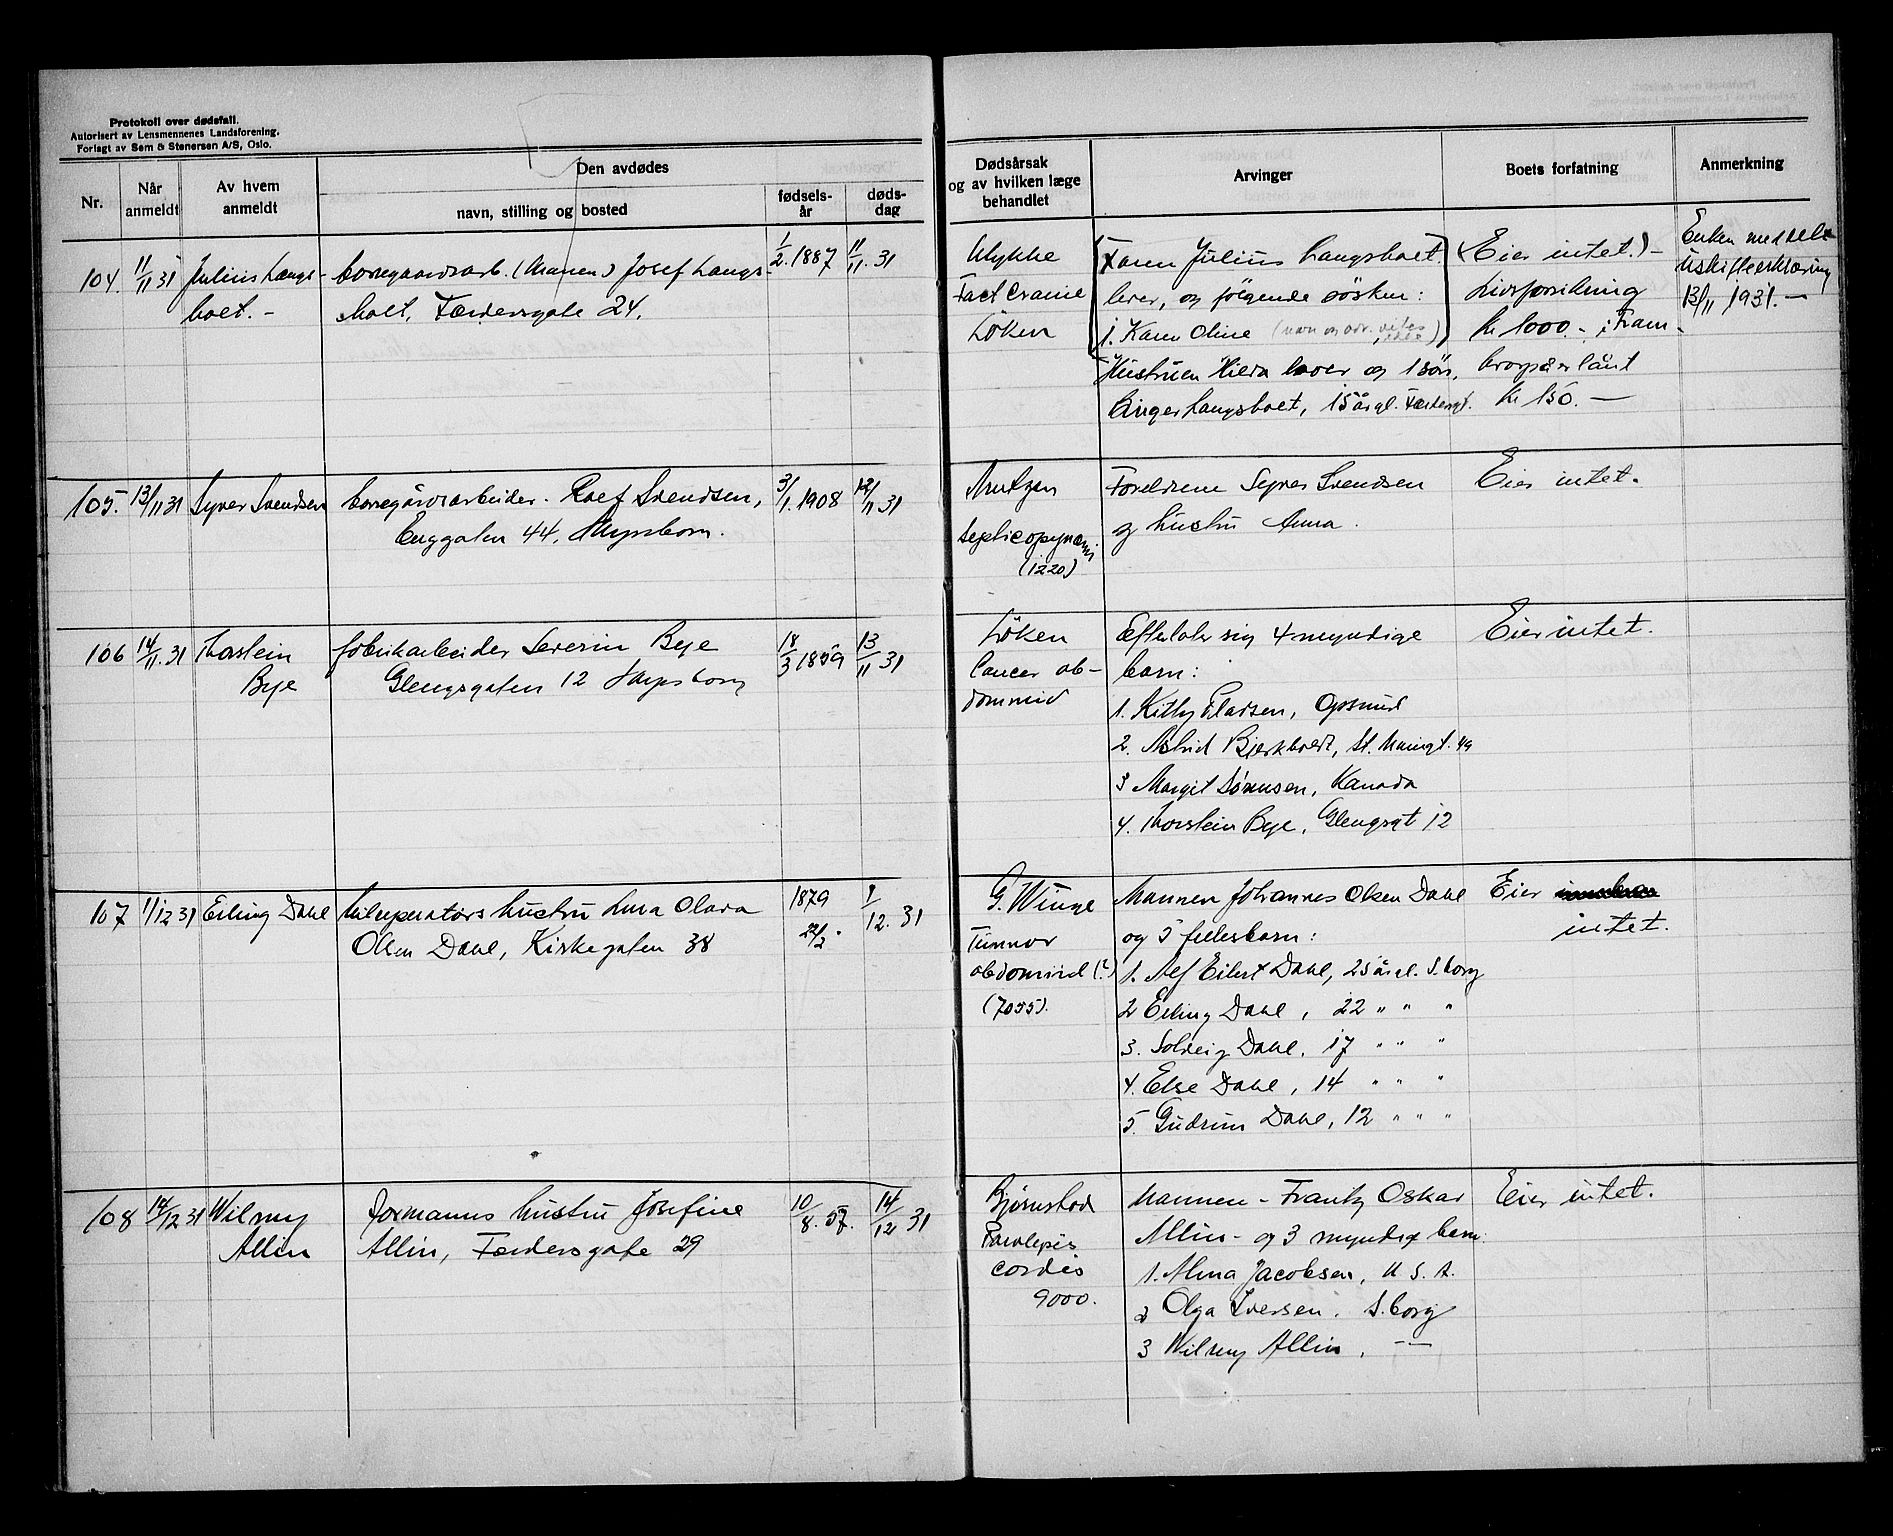 Protokoll over dødsfall.
Autorisert av Lensmennenes Landsforening.
Forlagt av Sem & Stenersen A/S, Oslo.
Nr.
Når anmeldt
Av hvem anmeldt
Den avdødes
navn, stilling og bosted
fødsels-år
døds-dag
Dødsårsak og av hvilken læge behandlet
Arvinger
Boets forfatning
Anmerkning
104. 11/11 31 Julius Langs-
holt. -
borregaardsarb. (Manen) Josef Langs-
holt, Færdersgate 24.
1/2. 1887 11/11. 31
Ulykke
Fact Cranie
Løken
Faren Julius Langsholt.
lever, og følgende søsken:
1. Karen Oline
Hustruen Hilda lever og 1 søn,
Langsholt, 15 år gl. Færdersgt.
(Eier intet.) -
Livsforsikring
Kr 1000. - i Fram-
kr 150. -
Enken meddelt
Uskifteerklæring
13/11 1931. -
105. 13/11 31 Syver Svendsen
borregårdsarbeider. Roef Svendsen,
Enggaten 44, Sarpsborg.
3/1. 1908 12/11 31
Arntzen
septicopyæmi
(1220)
Foreldrene Syver Svendsen
og hustru Anna.
Eier intet.
106 14/11. 31 Thorstein
Bye
fabrikarbeider Severin Bye
Glengsgaten 12 Sarpsborg
18/3 1859 13/11 31
Løken
Cancer ab-
dominid
Efterlater sig 4 myndige
barn:
1. Kitty Eladsen, Opsund
2. Astrid Bjerkholt, St. Mariegt. 49
3 Margit Sørensen, Kanada
4. Thorstein Bye, Glengsgt 12
Eier intet.
107 1/12 31 Erling Dahl
hustru Lina Olava
Olsen Dahl, Kirkegaten 38
1879
22/2.
1/12. 31
G. Winge
Tumor
abdominid (?)
(7055).
Mannen Johannes Olsen Dahl
og 5 fellesbarn:
1. Alf Eilert Dahl, 25 år gl. S.borg
2 Erling Dahl, 22 " " "
3. Solveig Dahl, 17 " " "
4. Else Dahl, 14 " " "
5. Gudrun Dahl, 12 " " "
Eier
intet.
108 14/12 31 Wilmy
Allin
Formanns hustru Josefine
Allin, Færdersgate 29
10/8. 57. 14/12 31
Bjørnstad
Paralysis
cordis
9000.
Mannen - Frantz Oskar
Allin - og 3 myndige barn:
1. Alma Jacobsen, U. S. A.
2 Olga Iversen, S.borg
3 Wilmy Allin, -"-
Eier intet.